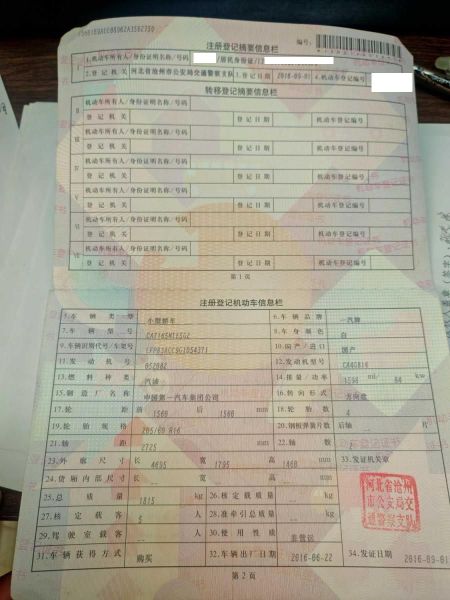 注册登记摘要信息栏
编号:
1.机动车所有人/身份证明名称/号码 /居民身份证/
I 2.登记机关 河北省沧州市公安局交通警察支队 3.登记日期 2016-09-01 4.机动车登记编号
转移登记摘要信息栏
机动车所有人/身份证明名称/号码
II 登记机关 登记日期 机动车登记编号
机动车所有人/身份证明名称/号码
III 登记机关 登记日期 机动车登记编号
机动车所有人/身份证明名称/号码
IV 登记机关 登记日期 机动车登记编号
机动车所有人/身份证明名称/号码
V 登记机关 登记日期 机动车登记编号
机动车所有人/身份证明名称/号码
VI 登记机关 登记日期 机动车登记编号
机动车所有人/身份证明名称/号码
VII 登记机关 登记日期 机动车登记编号
第1页
注册登记机动车信息栏
5.车辆类型 小型轿车 6.车辆品牌 一汽牌
7.车辆型号 8.车身颜色 白
9.车辆识别代号/车架号 10.国产/进口 国产
11.发动机号 052082 12.发动机型号 CA4GB16
13.燃料种类 汽油 14.排量/功率 1598 ml/ kw
15.制造厂名称 中国第一汽车集团公司 16.转向形式 方向盘
17.轮距 前 1560 后 1560 mm 18.轮胎数 4
19.轮胎规格 205/60 R16 20.钢板弹簧片数 后轴 片
21.轴距 2725 mm 22.轴数 2
23.外廓尺寸 长 4695 宽 1795 高 1460 mm 33.发证机关
24.货厢内部尺寸 长 宽 高 mm
25.总质量 1815 kg 26.核定载质量 kg
27.核定载客 人 28.准牵引总质量 kg
29.驾驶室载客 人 30.使用性质 非营运
31.车辆获得方式 购买 32.车辆出厂日期 2016-06-22 34.发证日期 2016-09-01
河北省沧州
市公安局交
通警察支队
第2页